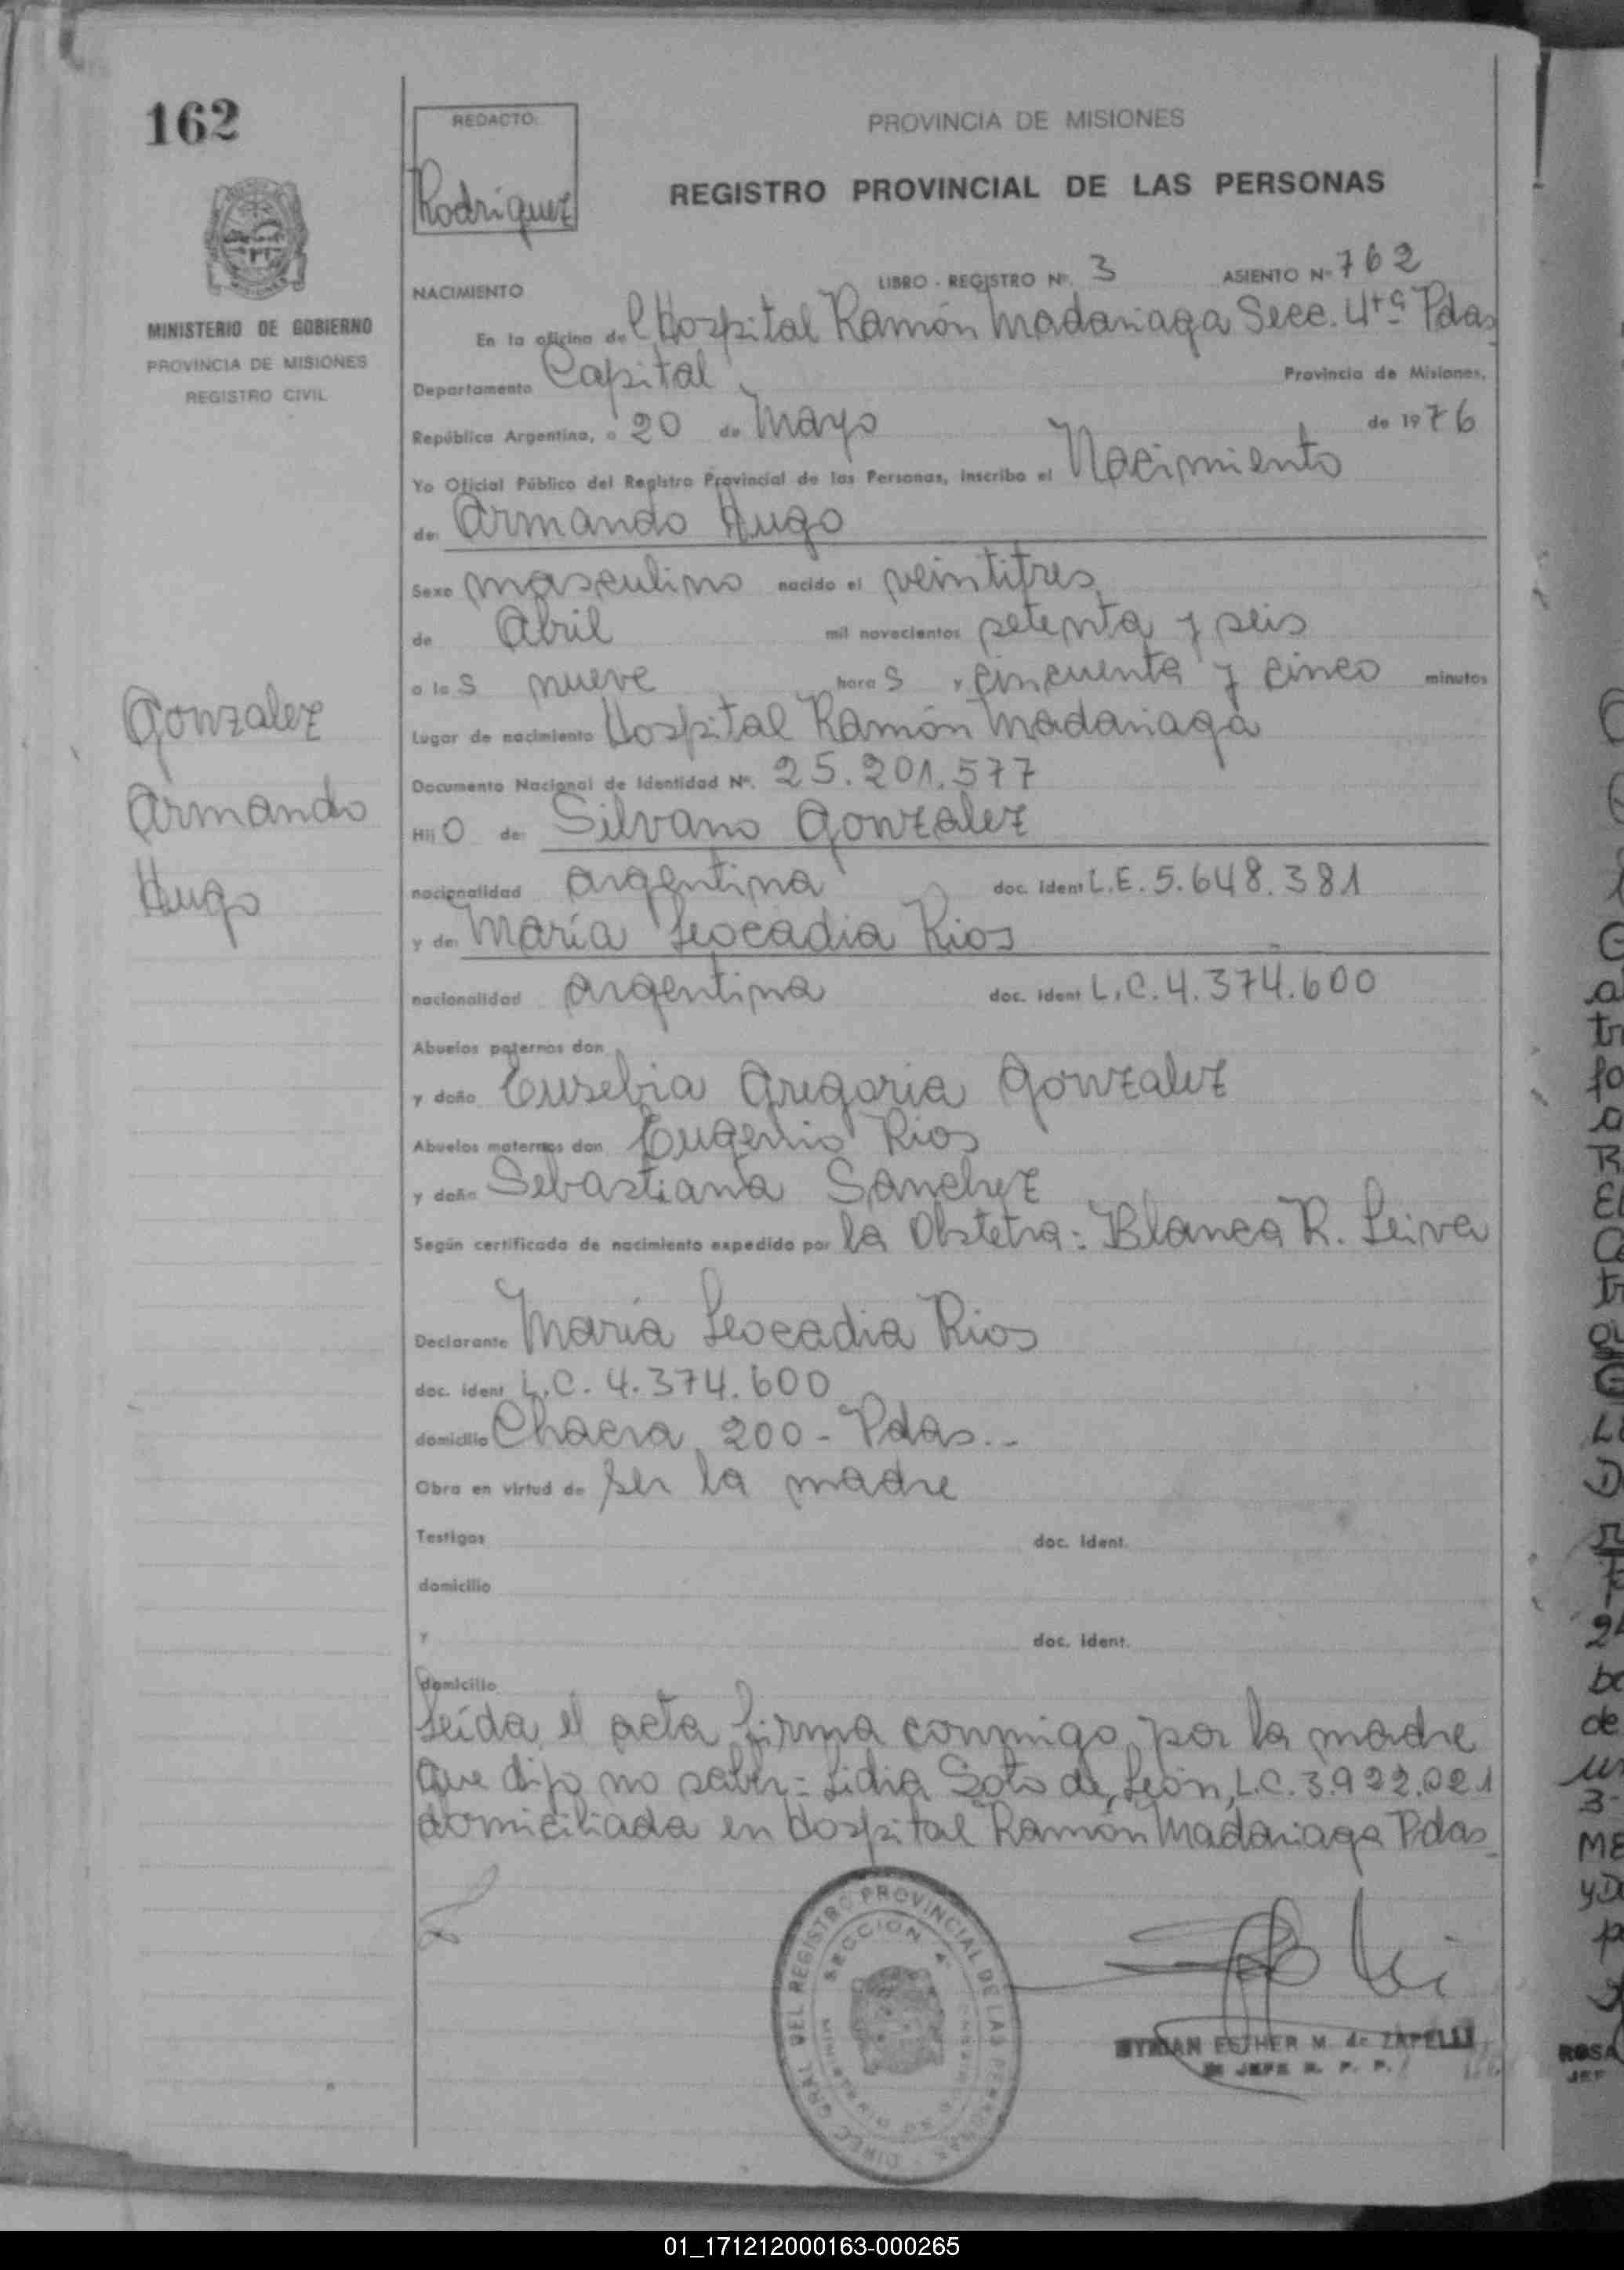 162
REDACTO:
Rodriguez
PROVINCIA DE MISIONES
REGISTRO PROVINCIAL DE LAS PERSONAS
MINISTERIO DE GOBIERNO
PROVINCIA DE MISIONES
REGISTRO CIVIL
NACIMIENTO LIBRO - REGISTRO Nº. 3 ASIENTO Nº 762
En la oficina del Hospital Ramón Madariaga Secc. 4ta Pdas
Departamento Capital Provincia de Misiones,
República Argentina, a 20 de Mayo de 1976
Yo Oficial Público del Registro Provincial de las Personas, inscribo el Nacimiento
de: Armando Hugo
Sexo masculino nacido el veintitres
de Abril mil novecientos setenta y seis
a las nueve horas y cincuenta y cinco minutos
Lugar de nacimiento Hospital Ramón Madariaga
Documento Nacional de Identidad Nº. 25.201.577
Hijo de: Silvano Gonzalez
nacionalidad argentina doc. ident L.E. 5.648.381
y de: María Leocadia Rios
nacionalidad argentina doc. ident L.C. 4.374.600
Abuelos paternos don
y doña Eusebia Gregoria Gonzalez
Abuelos maternos don Eugenio Rios
y doña Sebastiana Sanchez
Según certificado de nacimiento expedido por la Obstetra: Blanca R. Leiva
Declarante María Leocadia Rios
doc. ident L.C. 4.374.600
domicilio Chacra 200 - Pdas.-
Obra en virtud de ser la madre
Testigos doc. ident.
domicilio
y doc. ident.
domicilio
Leída el acta firma conmigo por la madre
que dijo no saber: Lidia Soto de León, L.C. 3.922.021
domiciliada en Hospital Ramón Madariaga Pdas
Gonzalez
Armando
Hugo
DIREC. GRAL. DEL REGISTRO PROVINCIAL DE LAS PERSONAS
SECCION 4ª
ESTHER M. de ZAPELLI
JEFE R. P. P.
01_171212000163-000265